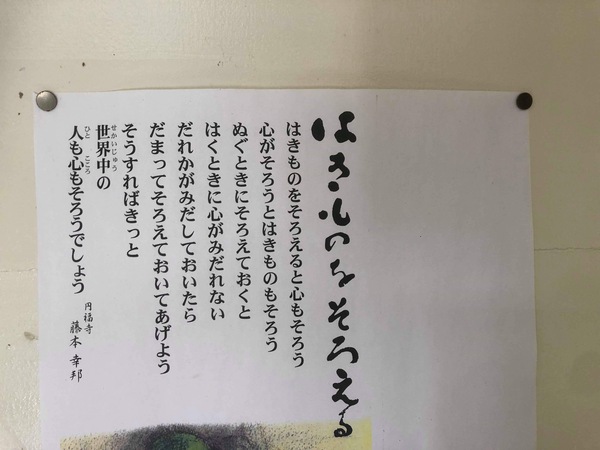 はきものをそろえる
はきものをそろえると心もそろう
心がそろうとはきものもそろう
ぬぐときにそろえておくと
はくときに心がみだれない
だれかがみだしておいたら
だまってそろえておいてあげよう
そうすればきっと
世界中の
せかいじゅう
人も心もそろうでしょう
ひと こころ
円福寺
藤本幸邦